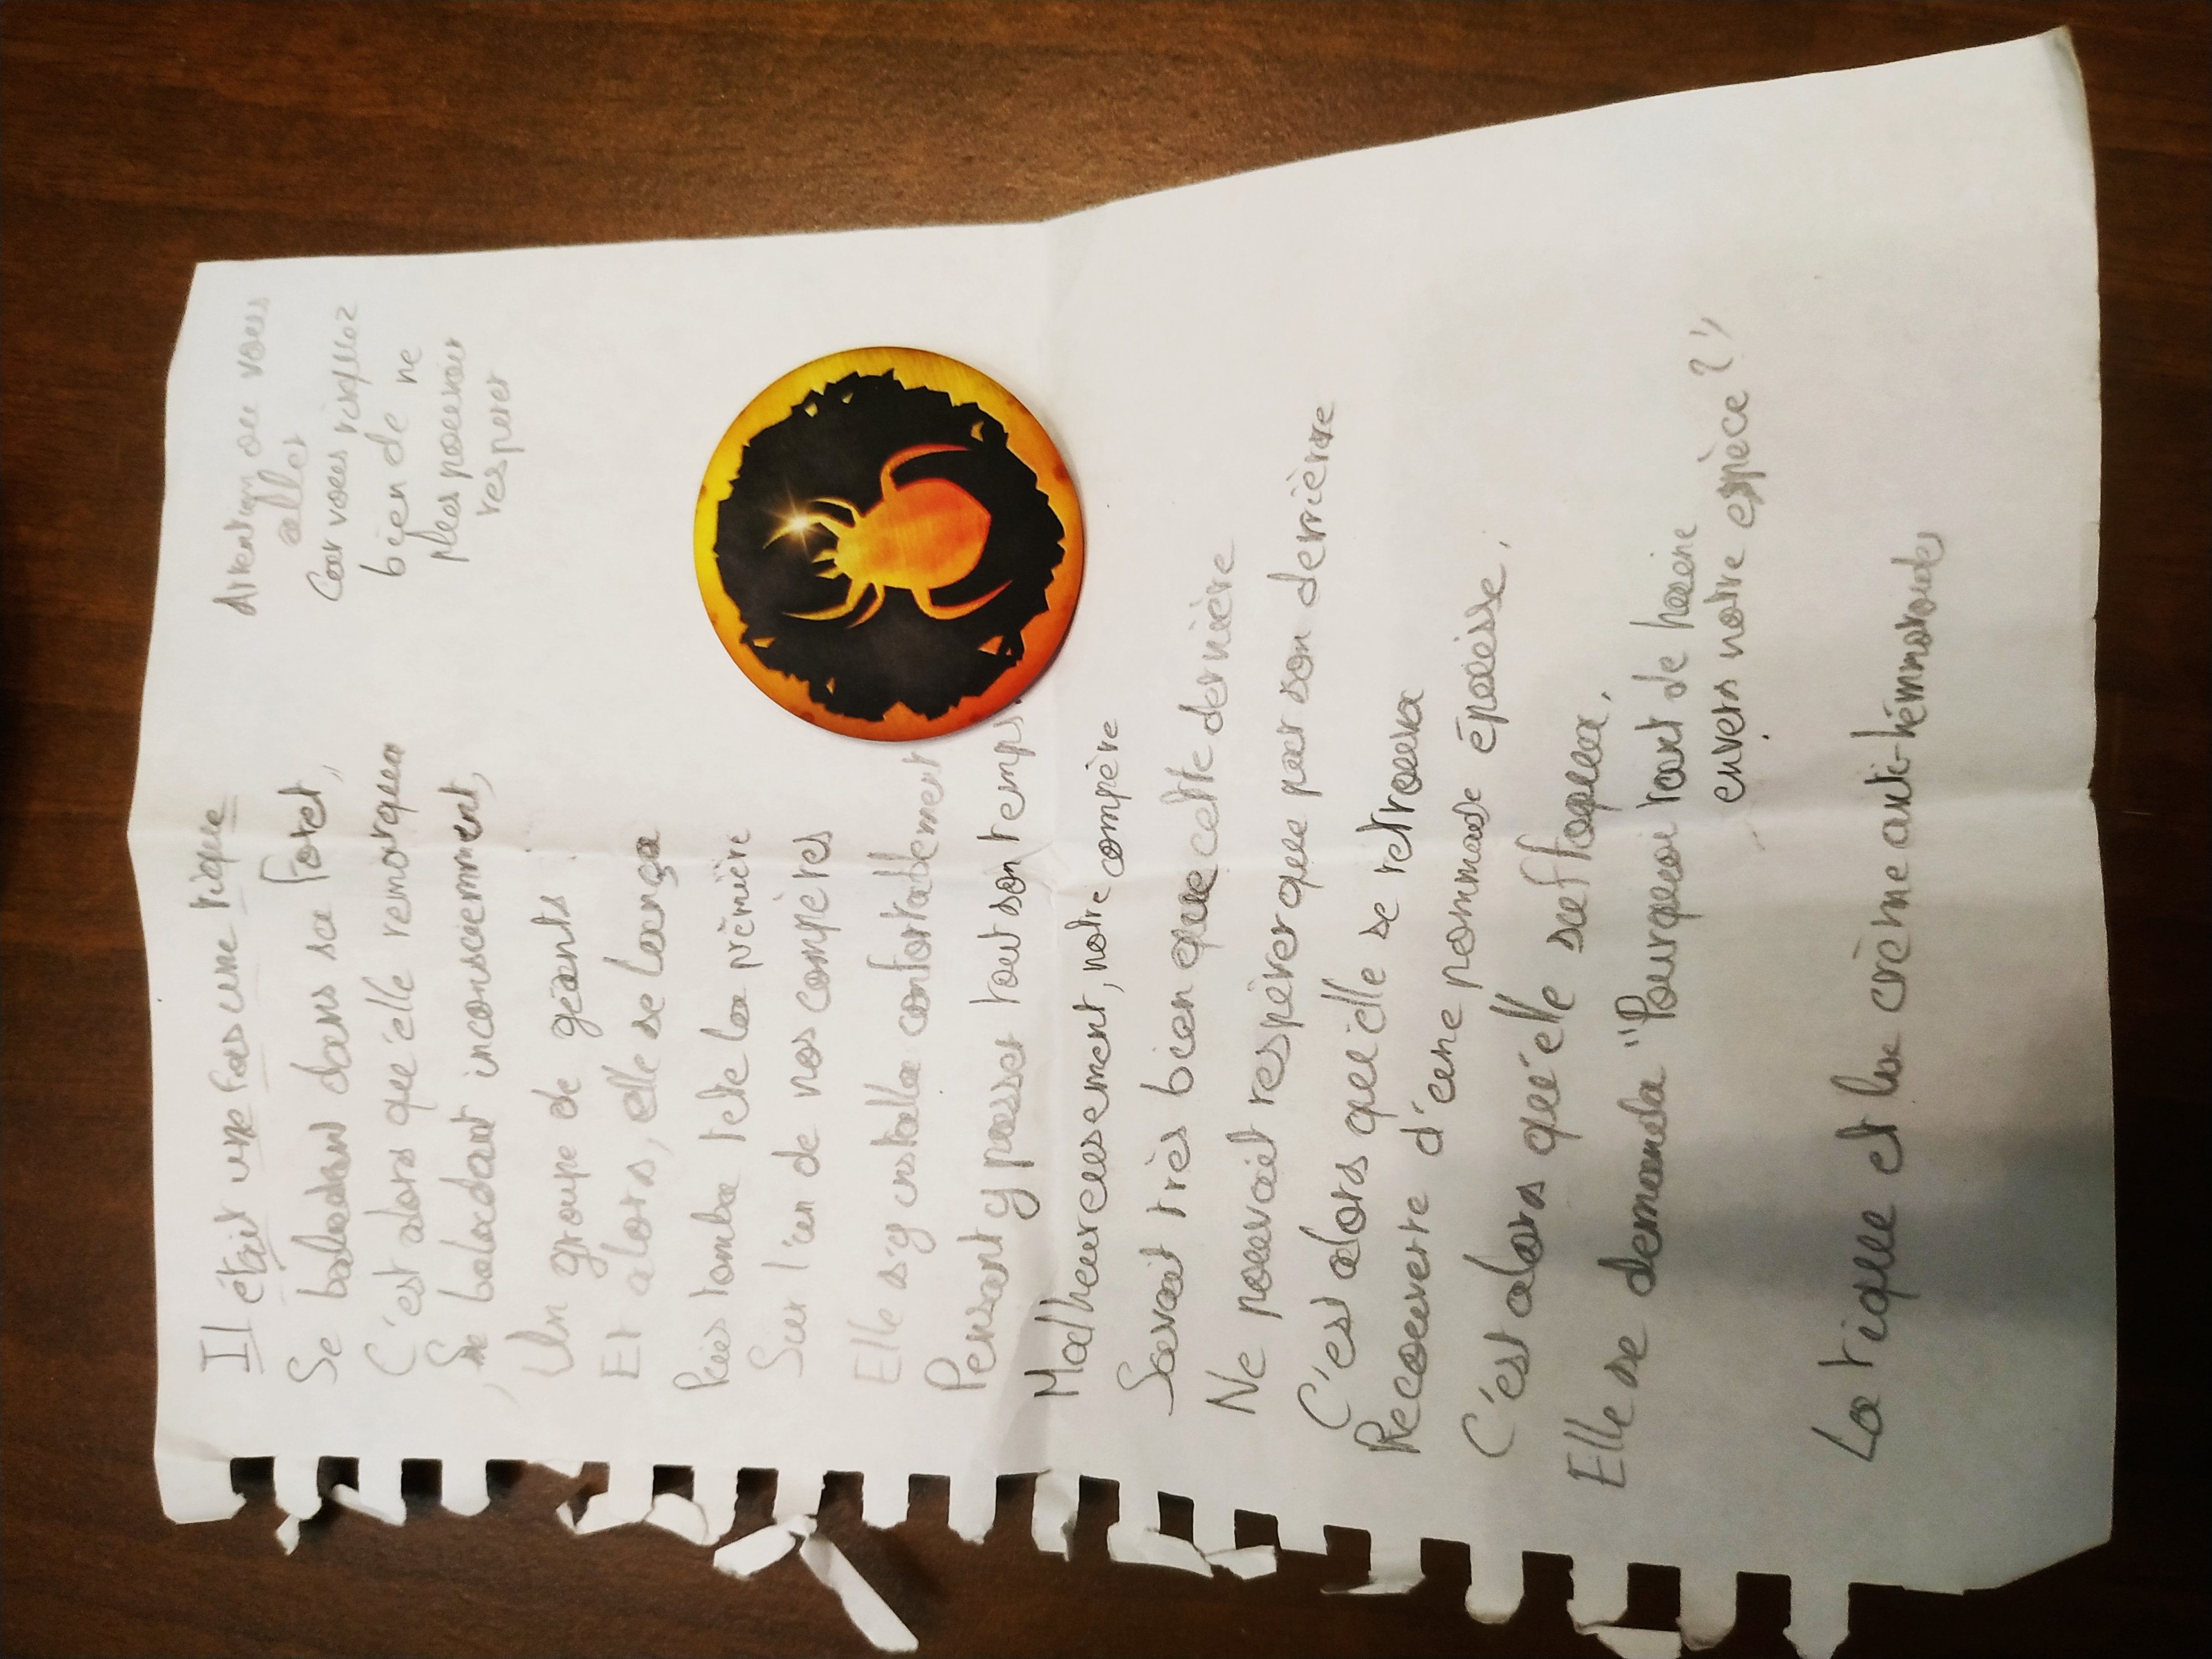 Il était une fois une tique
Se baladant dans sa foret,
C'est alors qu'elle remarqua
Se baladant inconsciemment,
Un groupe de géants
Et alors, elle se lança
Puis tomba tete la première
Sur l'un de nos compères
Elle s'y installa confortablement
Pensant y passer tout son temps.
Malheureusement, notre compère
Savait très bien que cette dernière
Ne pouvait respirer que par son derrière
C'est alors qu'elle se retrouva
Recouverte d'une pommade épaisse.
C'est alors qu'elle suffoqua.
Elle se demanda "Pourquoi tant de haine
envers notre espèce ?"
La tique et la crème anti-hémmoroïdes
Attention ou vous
allez
Car vous risquez
bien de ne
plus pouvoir
respirer